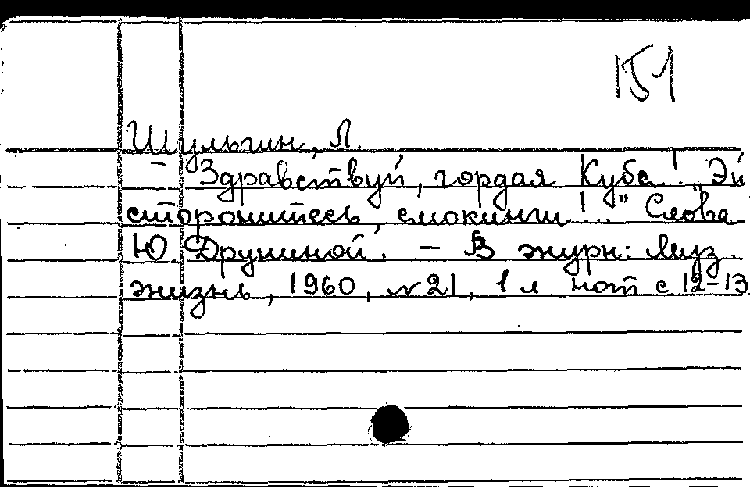 151
Шульгин, Л.
Здравствуй, гордая Куба! "Эй
сторонитесь, смокинги!.." Слова
Ю. Друниной. — В журн: Муз.
жизнь, 1960, №21, 1 л нот с 12-13